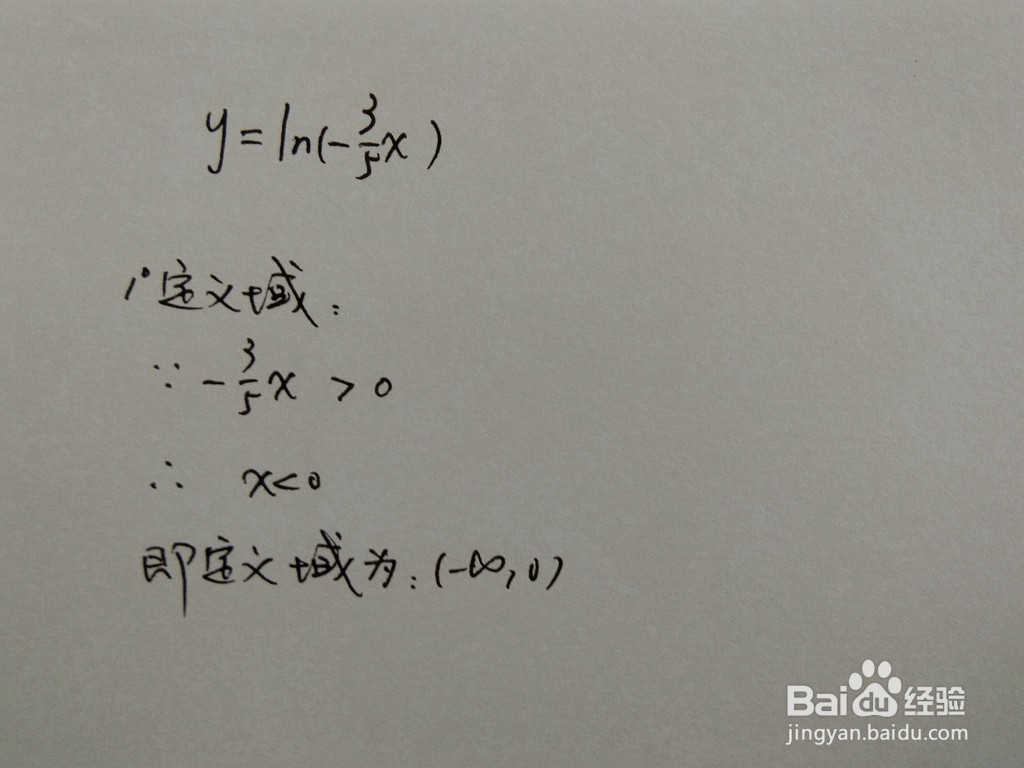 y=ln(-3/5x)
1°定义域:
∵ -3/5x > 0
∴ x<0
即定义域为:(-∞,0)
Bai du 经验
jingyan.baidu.com